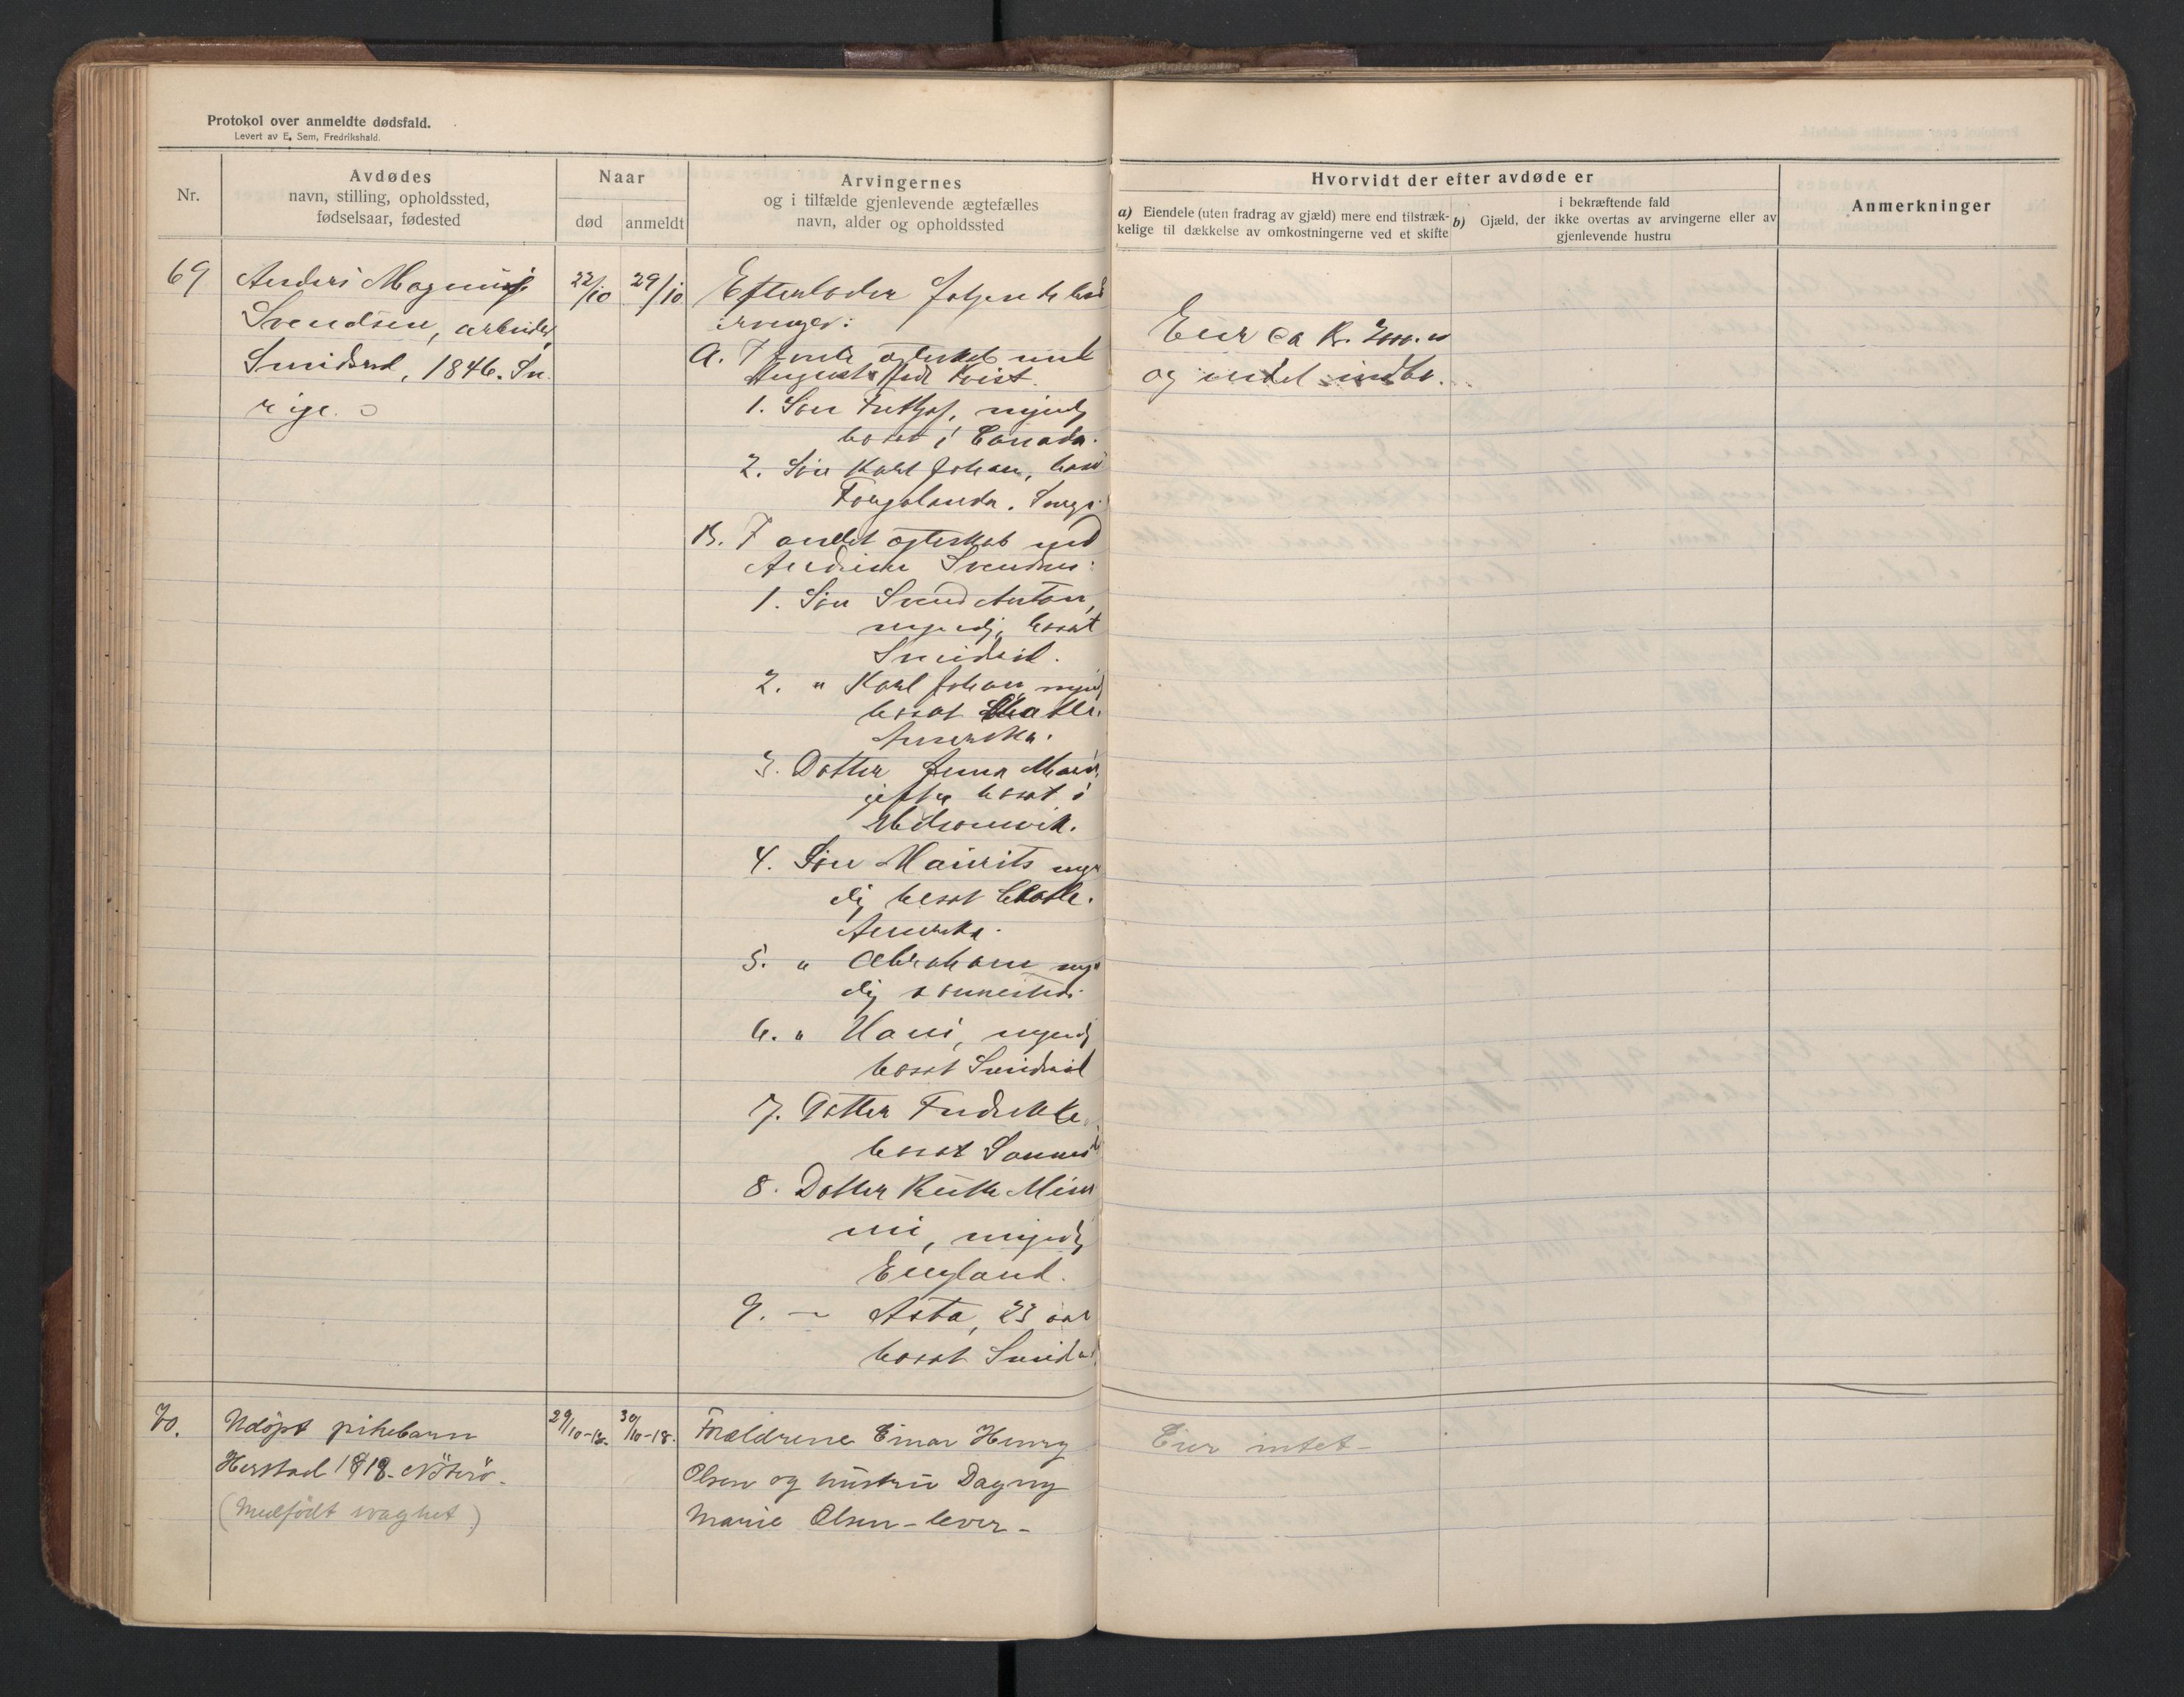 Protokol over anmeldte dødsfald.
Levert av E. Sem, Fredrikshald.
Nr.
Avdødes
navn, stilling, opholdssted,
fødselsaar, fødested
Naar
død
anmeldt
Arvingernes
og i tilfælde gjenlevende ægtefælles
navn, alder og opholdssted
Hvorvidt der efter avdøde er
a) Eiendele (uten fradrag av gjæld) mere end tilstræk-
kelige til dækkelse av omkostningerne ved et skifte
b) Gjæld, der i bekræftende fald
ikke overtas av arvingerne eller av
gjenlevende hustru
Anmerkninger
69
Anders Magnus
Svendsen, arbeider,
Smidsrød, 1846. Sve
rige.
22/10
29/10
Efterlader følgende
arvinger:
A. I første ægteskab med
Augusta født Kvist.
1. Søn Fritjof, myndig
bosat i Canada.
2. Søn Karl Johan, bosat
Sverge.
B. I andet ægteskab med
Andrine Svendsen:
1. Søn Svend Anton,
myndig, bosat
Smidsrød.
2. " Karl Johan, myndig
bosat
Amerika.
3. Datter Anna Marie,
gift, bosat i
4. Søn Maurits myn
dig bosat
Amerika.
5. " Abraham myn
dig sammesteds.
6. " Hans, myndig
bosat Smidsrød
7. Datter Fredrikke,
bosat Sammest
8. Datter Ruth Min
ni, myndig
England.
9. — Asta, 23 aar
bosat Smidsrød
Eier ca Kr.
og endel indbo.
70.
Udöpt pikebarn
Herstad 1918 - Nöterö -
(Medfödt svaghet)
29/10-18.
30/10-18.
Forældrene Einar Henry
Olsen og hustru Dagny
Marie Olsen - lever -
Eier intet -